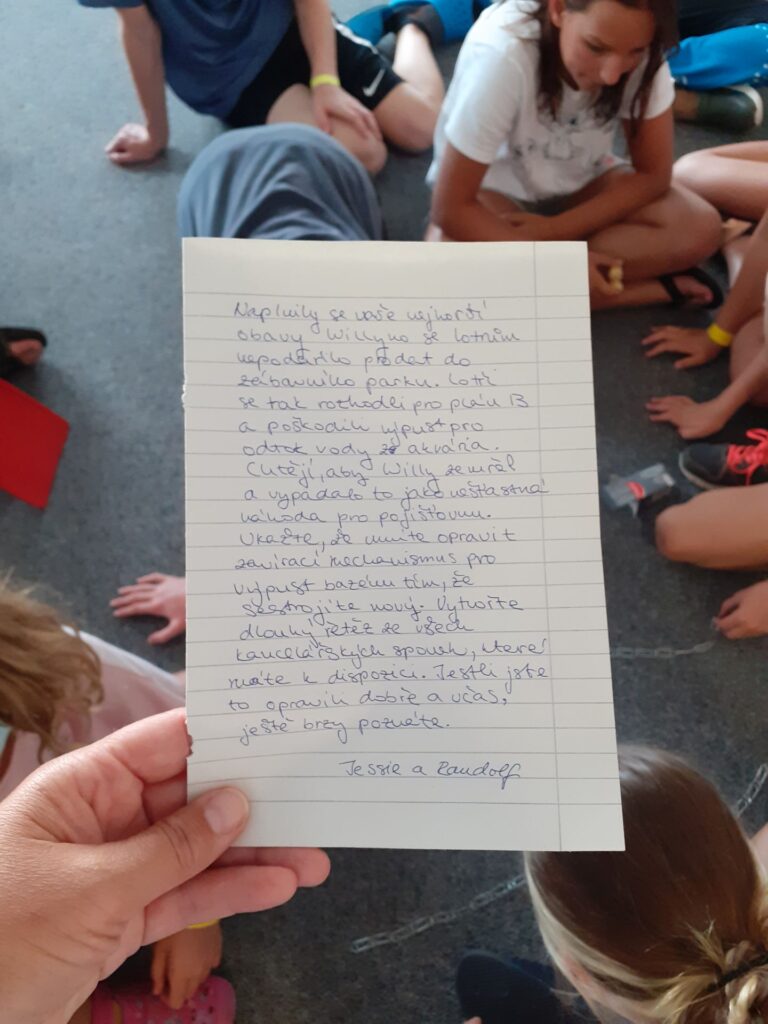 Naplnily se vaše nejhorší
obavy Willyho se lotrům
nepodařilo prodat do
zábavního parku. Lotři
se tak rozhodli pro plán B
a poškodili výpust pro
odtok vody z akvária.
Chtějí, aby Willy zemřel
a vypadalo to jako nešťastná
náhoda pro pojišťovnu.
Ukažte, že umíte opravit
zavírací mechanismus pro
výpust bazénu tím, že
sestrojíte nový. Vytvořte
dlouhý řetěz ze všech
kancelářských sponek, které
máte k dispozici. Jestli jste
to opravili dobře a včas,
ještě brzy poznáte.
Jessie a Randolf